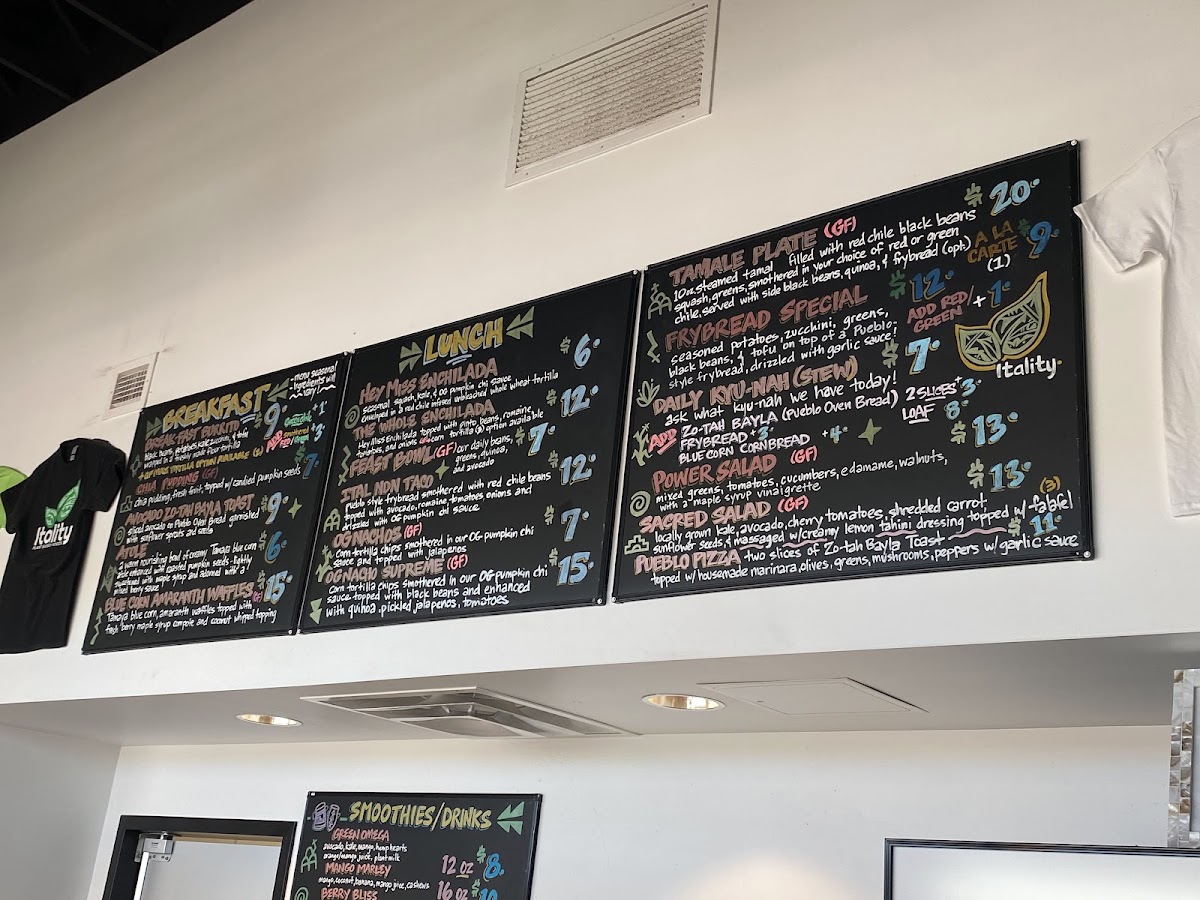 BREAKFAST
- menu seasonal
ingredients will
vary -
BREAK-FAST BURRITO $9.
black beans, potatoes, kale, zucchini, & tofu
wrapped in a freshly made flour tortilla
TORTILLA OPTION AVAILABLE
ADD
CHIA PUDDING (GF) 7.
chia pudding, fresh fruit, topped w/ candied pumpkin seeds
AVOCADO ZO-TAH BAYLA TOAST $9.
sliced avocado on Pueblo Oven Bread garnished
with sunflower sprouts and seeds
ATOLE $6.
a warm nourishing bowl of creamy Tamaya blue corn
atole enhanced w/ roasted pumpkin seeds - lightly
sweetened with maple syrup and adorned with a
mixed berry sauce
BLUE CORN AMARANTH WAFFLES (GF) $15.
Tamaya blue corn, amaranth waffles topped with
fresh berry maple syrup compote and coconut whipped topping
LUNCH
HEY MESS ENCHILADA $6.
seasonal squash, kale, & OG pumpkin chi sauce
enveloped in a red chile infused unbleached whole wheat tortilla
THE WHOLE ENCHILADA $12.
Hey Mess Enchilada topped with pinto beans, romaine,
tomatoes, and onions corn tortilla option available
FEAST BOWL (GF) our daily beans, $7.
greens, quinoa,
and avocado
ITAL NDN TACO $12.
Pueblo style frybread smothered with red chile beans
topped with avocado, romaine, tomatoes, onions and
drizzled with OG pumpkin chi sauce
OG NACHOS (GF) $7.
corn tortilla chips smothered in our OG pumpkin chi
sauce and topped with jalapenos
OG NACHO SUPREME (GF) $15.
Corn tortilla chips smothered in our OG pumpkin chi
sauce topped with black beans and enhanced
with quinoa, pickled jalapenos, tomatoes
TAMALE PLATE (GF) $20.
10 oz. steamed tamal filled with red chile black beans
squash, greens, smothered in your choice of red or green
chile, served with side black beans, quinoa, & frybread (opt.)
A LA
CARTE $9.
(1)
FRYBREAD SPECIAL $12.
seasoned potatoes, zucchini, greens,
black beans, & tofu on top of a Pueblo-
style frybread, drizzled with garlic sauce!
ADD RED/
GREEN +1.
Itality
DAILY KYU-NAH (STEW) $7.
ask what kyu-nah we have today!
ADD ZO-TAH BAYLA (Pueblo Oven Bread) 2 SLICES +3.
LOAF 8.
FRYBREAD +3.
BLUE CORN CORNBREAD +4.
POWER SALAD (GF) $13.
mixed greens, tomatoes, cucumbers, edamame, walnuts,
with a maple syrup vinaigrette
SACRED SALAD (GF) $13.
locally grown kale, avocado, cherry tomatoes, shredded carrot,
sunflower seeds, & massaged w/creamy lemon tahini dressing topped w/ falafel (3)
PUEBLO PIZZA two slices of Zo-tah Bayla Toast $11.
topped w/ housemade marinara, olives, greens, mushrooms, peppers w/ garlic sauce
Itality
SMOOTHIES/DRINKS
GREEN OMEGA
avocado, kale, mango, hemp hearts
orange/mango juice, plant milk
MANGO MARLEY
mango, coconut, banana, mango juice, cashews
BERRY BLISS
12 oz $8.
16 oz $10.